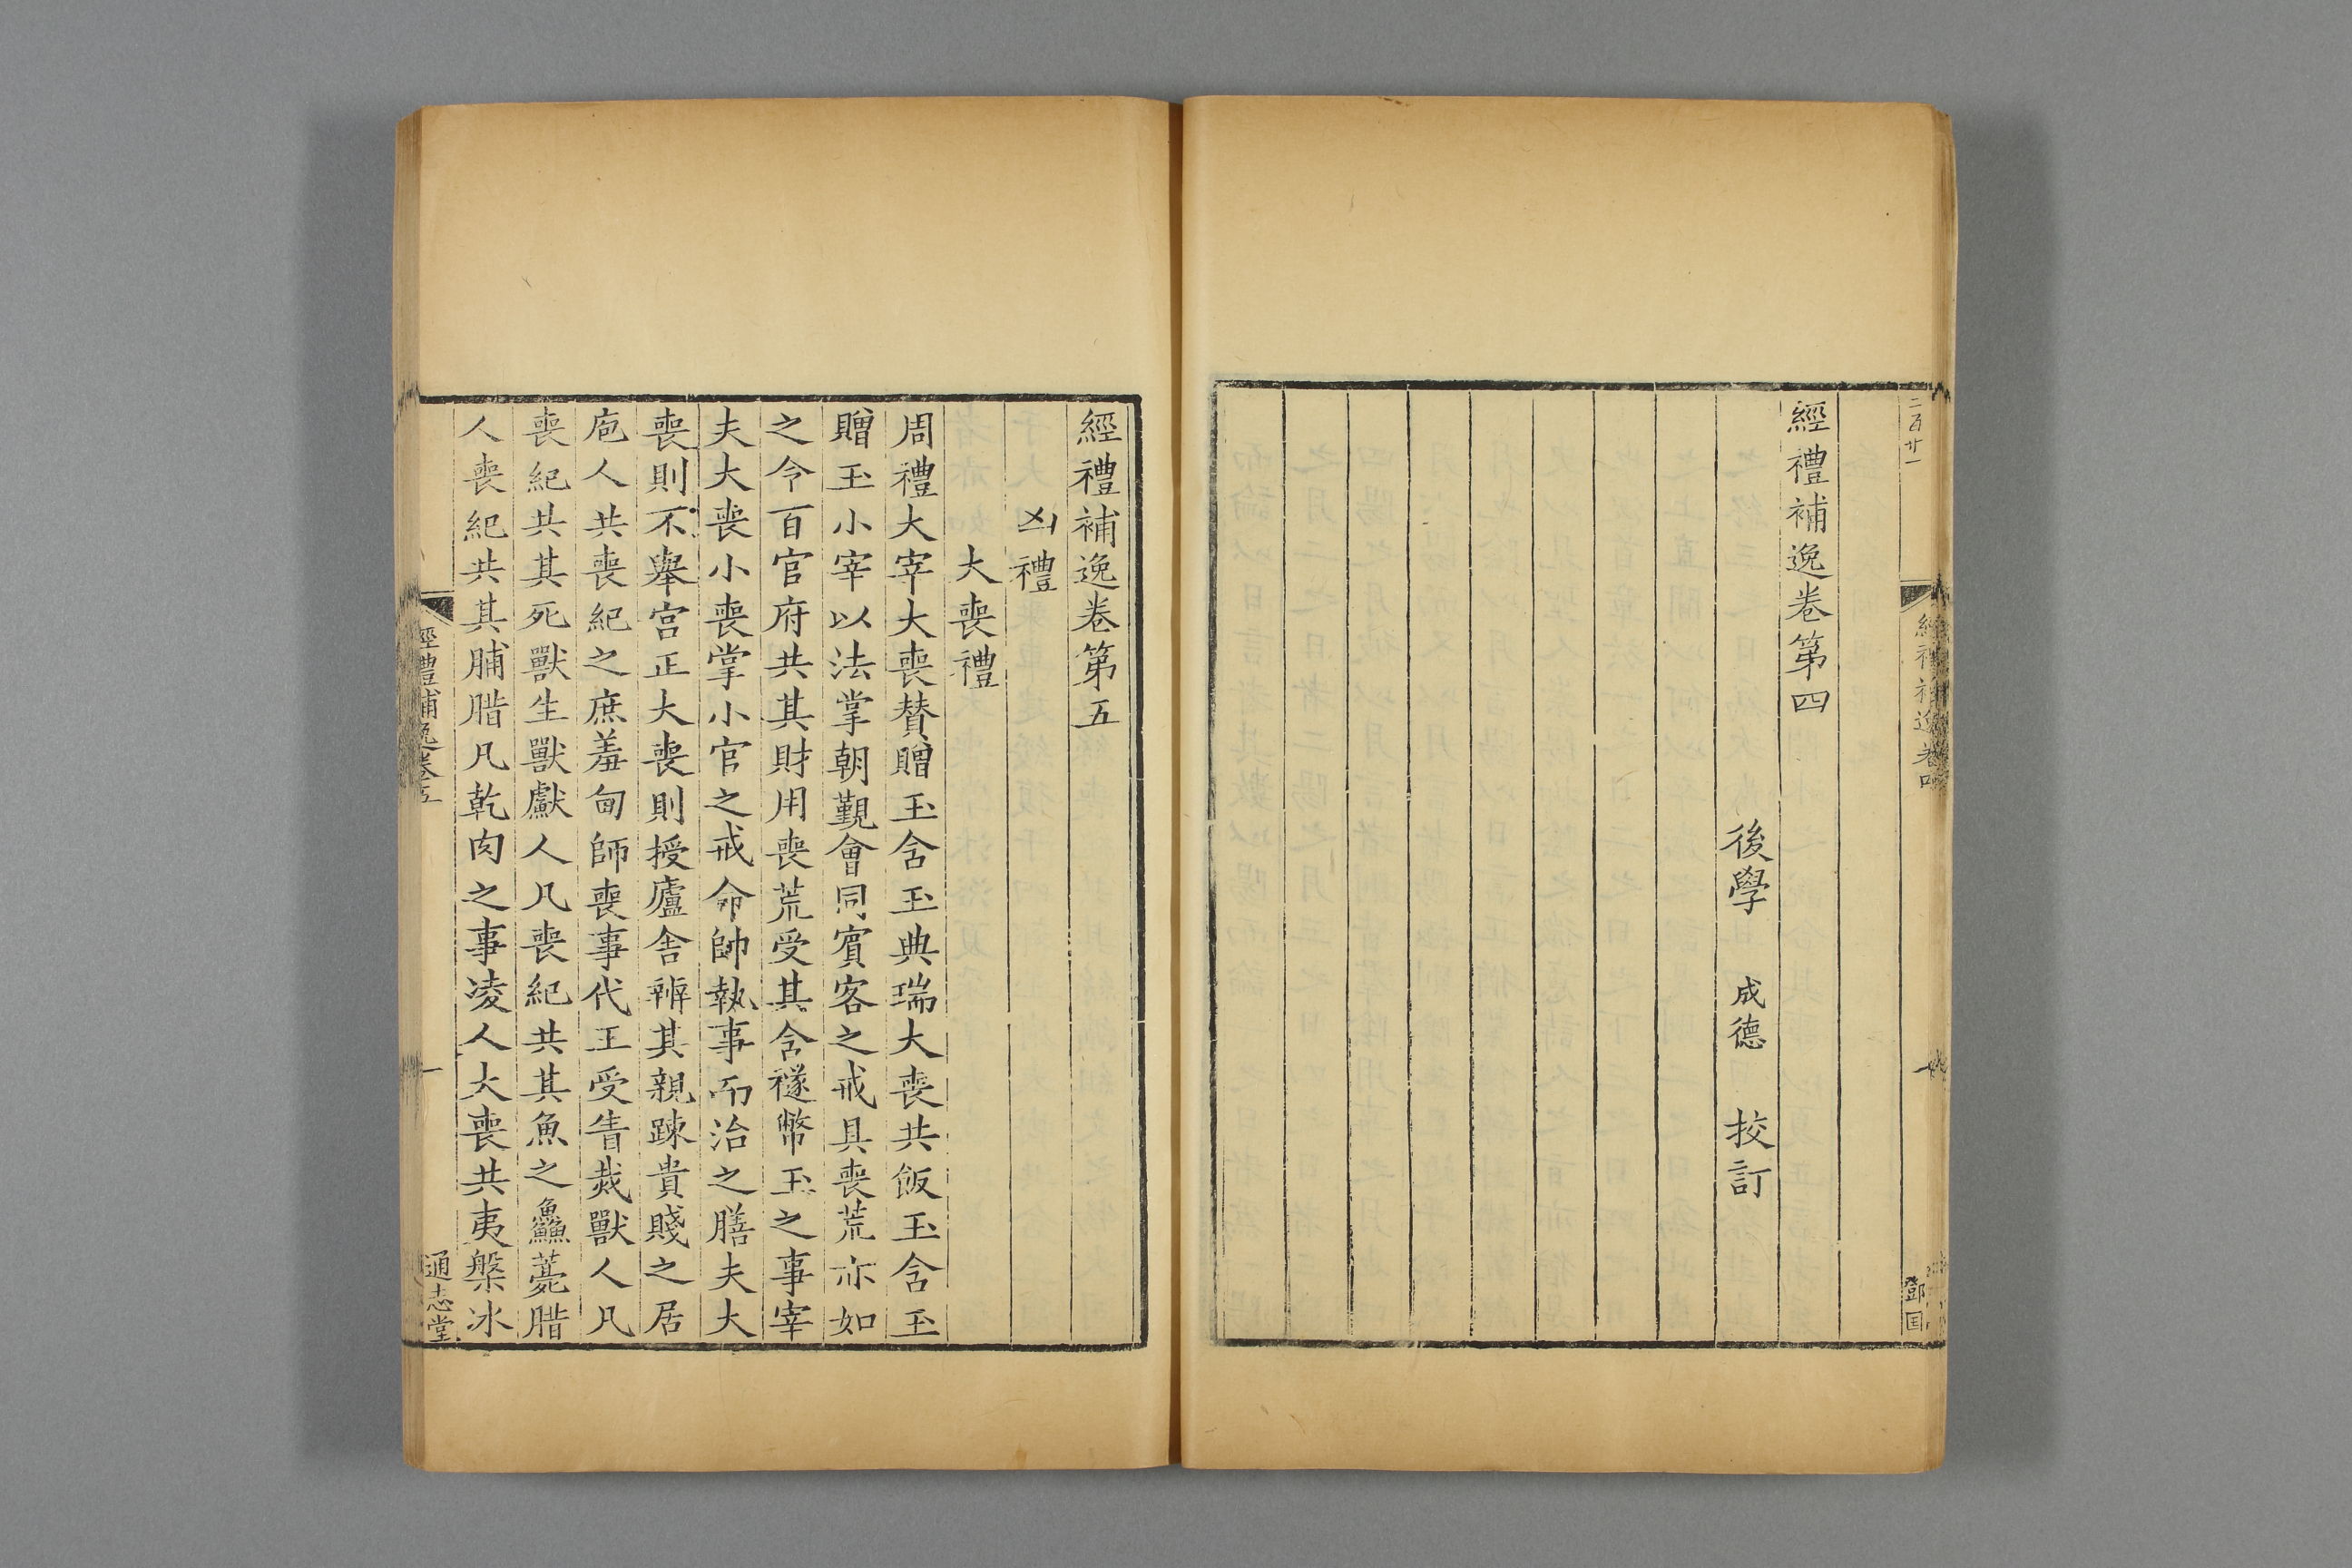 二百廿一
經禮補逸卷四
鄧国
經禮補逸卷第四
後學 成德 挍訂
經禮補逸卷第五
凶禮
大喪禮
周禮大宰大喪賛贈玉含玉典瑞大喪共飯玉含玉
贈玉小宰以法掌朝覲會同賓客之戒具喪荒亦如
之令百官府共其財用喪荒受其含襚幣玉之事宰
夫大喪小喪掌小官之戒命帥執事而治之膳夫大
喪則不舉宫正大喪則授廬舍辨其親踈貴賤之居
庖人共喪紀之庶羞甸師喪事代王受眚烖獸人凡
喪紀共其死獸生獸䱷人凡喪紀共其魚之鱻薧腊
人喪紀共其脯腊凡乾肉之事凌人大喪共夷槃冰
經禮補逸卷五
一
通志堂